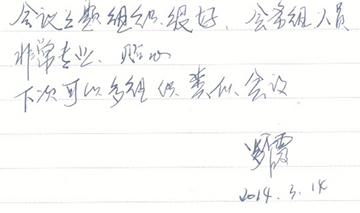 会议主题组织很好、会务组人员
非常专业、贴心
下次可以多组织类似会议
霞
2014.3.14